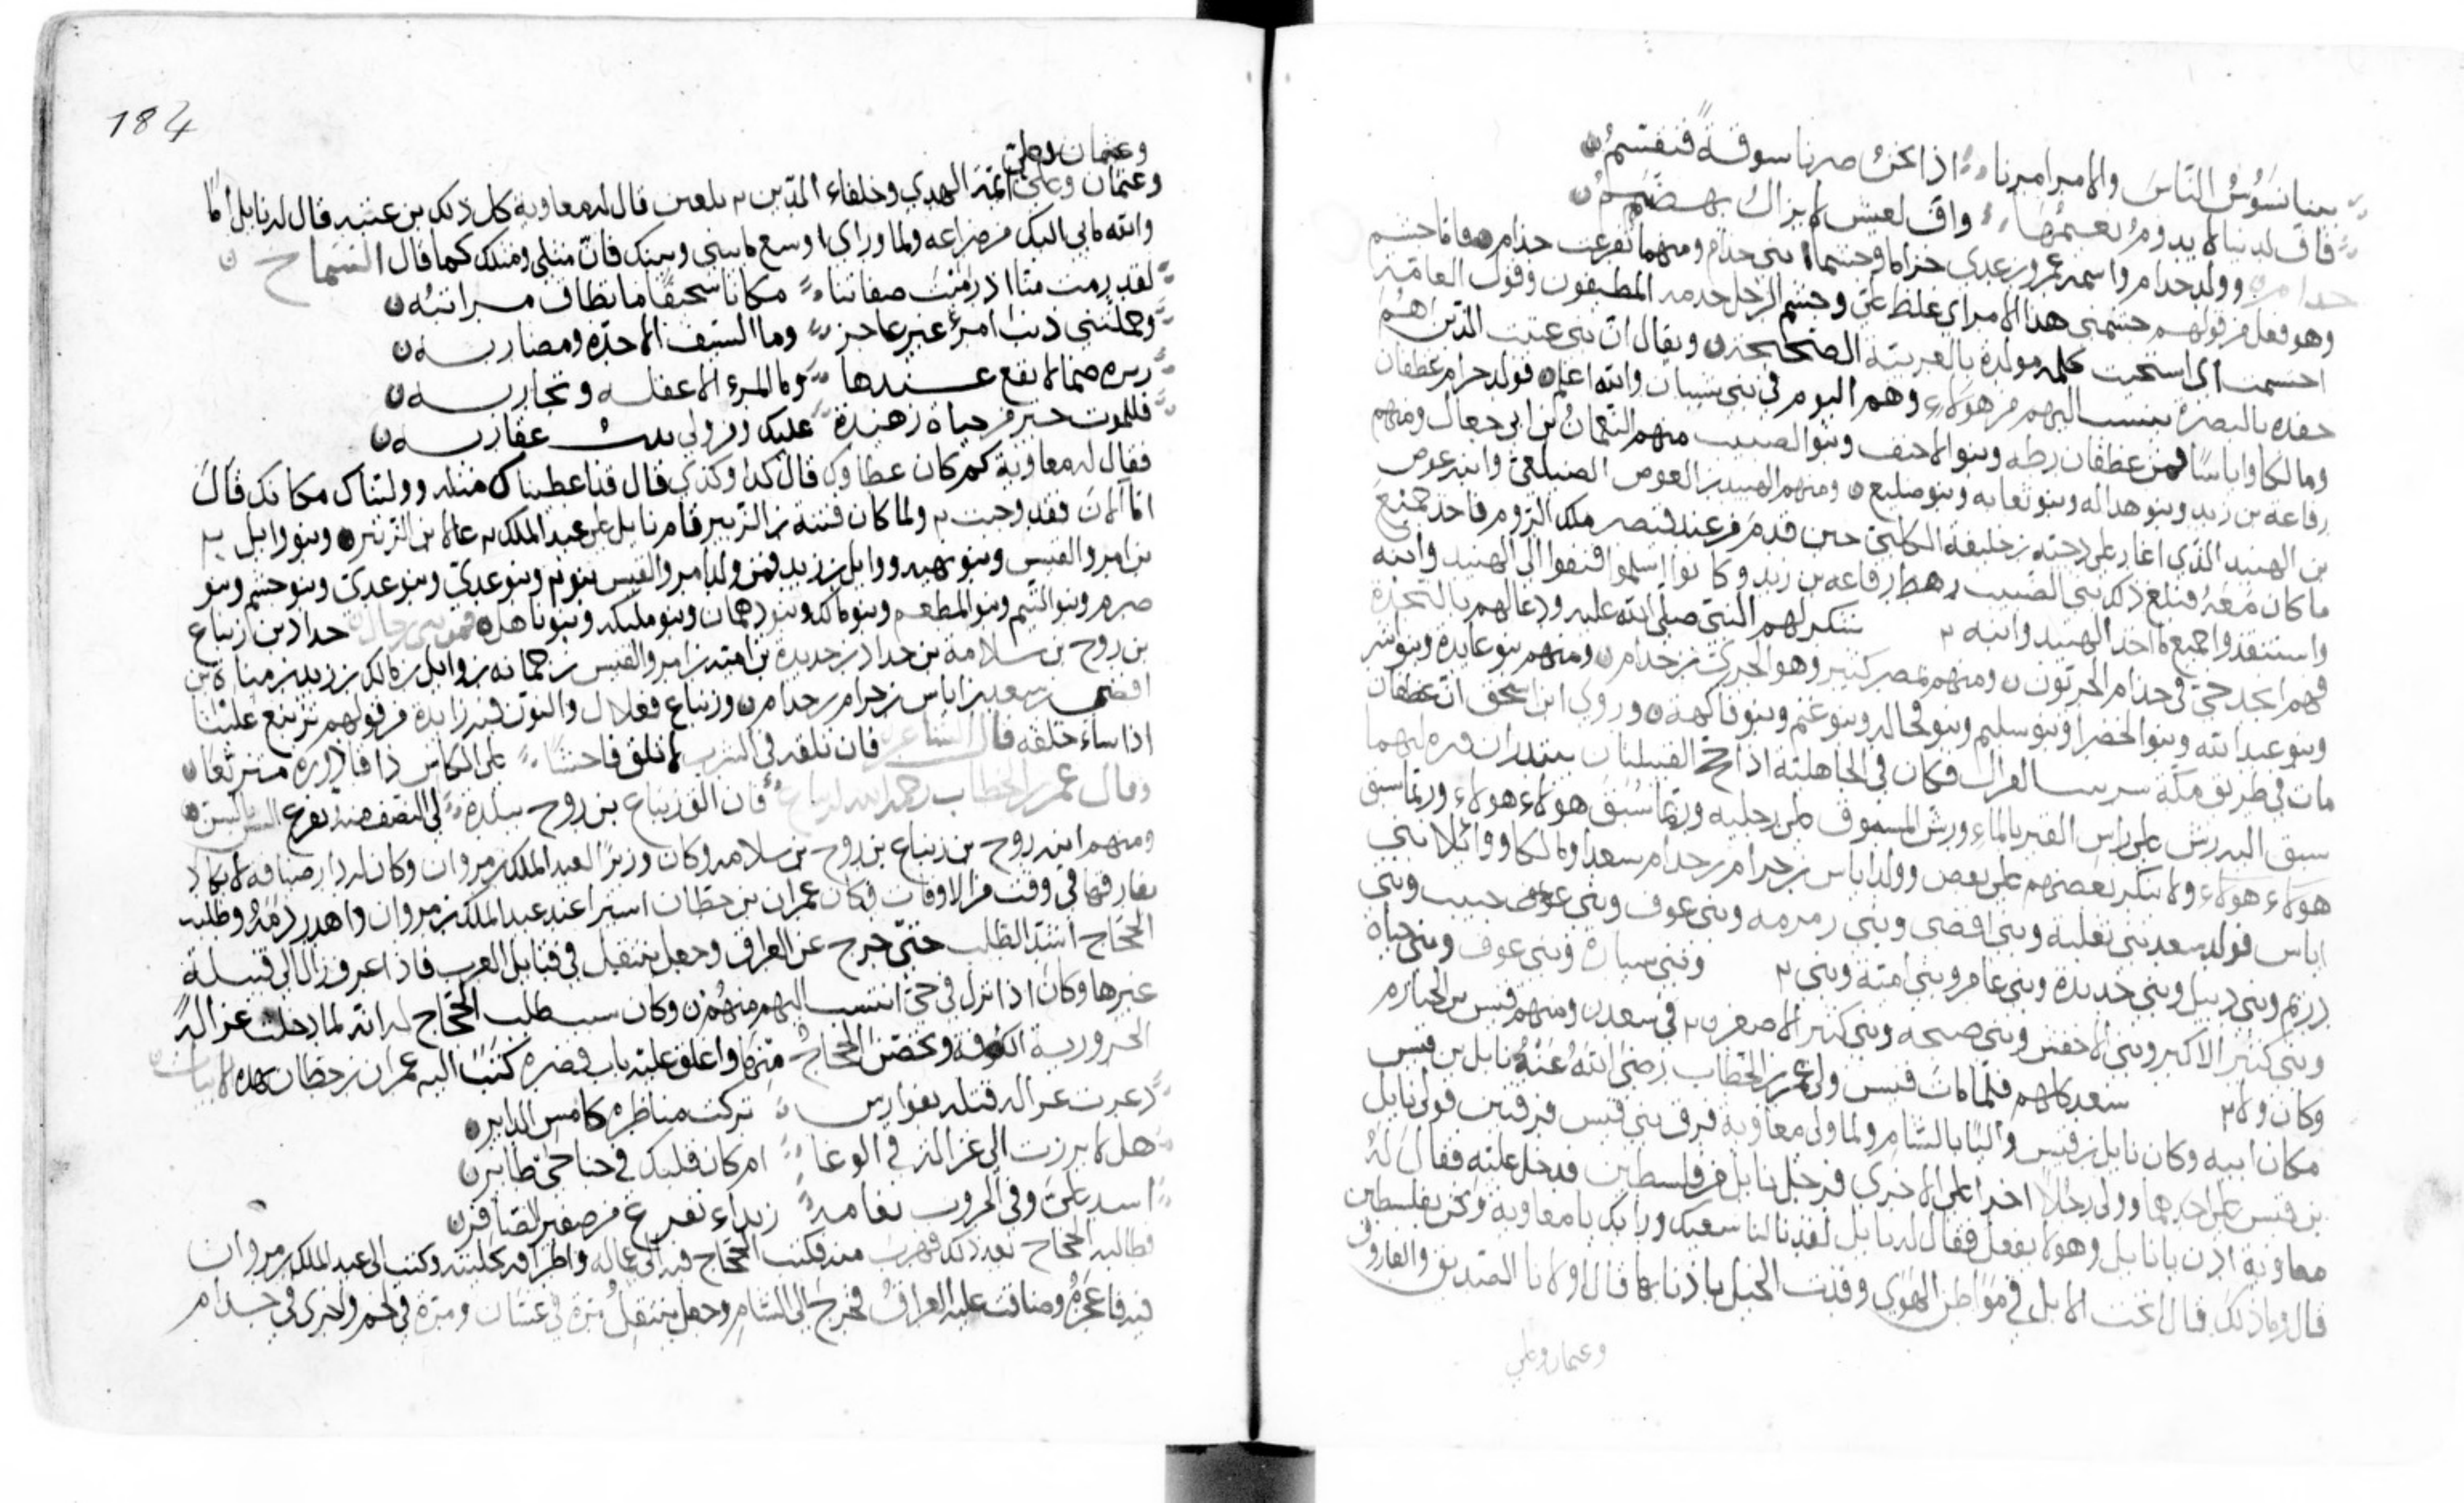 بينا نسوس الناس والامر امرنا اذا نحن صرنا سوقة فنقسم ن
فاف لدنيا لا يدوم نعيمها واف لعيش لا يزال يهضم ن
وولد جدام واسمه عمرو بن عدي حراما وحشما بنى جدام ومنهما تفرعت جدام فاما حشم
وهو فعل من قولهم حشمنى هذا الامر اى غلظ على وحشم الرجل خدمه المطيفون وقول العامة
احتشمت اى استحيت كلمة مولدة بالعربية الصحيحة ن ويقال ان بنى عتيت الذين اهم
حفده بالبصرة ينسب اليهم من هولاء وهم اليوم في بنى شيبان والله اعلم فولد حرام غطفان
ومالكا واياسا فمن غطفان وبنو الاحنف وبنو الضبيب منهم النعمان بن ابى جعال ومنهم
رفاعة بن زيد وبنو هداله وبنو نعابه وبنو صليع ن ومنهم الهنيد بن العوص الصليعى وابنه عوص
بن الهنيد الذي اغار على دحية بن خليفة الكلبى حين قدم من عند قيصر ملك الروم فاخد جميع
ما كان معه فبلغ ذلك بنى الضبيب رهط رفاعة بن زيد وكانوا اسلموا فنفروا الى الهنيد وابنه
واستنقدوا جميع ما اخد الهنيد وابنه فشكر لهم النبى صلى الله عليه ودعا لهم بالنجدة
فهم انجد حى في جدام ن ومنهم بمصر كثير وهو بن جدام ن ومنهم بنو عايدة وبنو
وبنو عبد الله وبنو الخضرا وبنو سليم وبنو وبنو غنم وبنو فاكهة ن وروى ابن اسحق ان غطفان
مات في طريق مكة فكان في الجاهلية اذا حج القبيلتان يبتدران قبره ايهما
سبق اليه رش على راس القبر بالماء ورش المسبوق على رجليه وربما سبق هولاء هولاء وربما سبق
هولاء هولاء ولا ينكر بعضهم على بعض وولد اياس بن حرام بن جدام سعدا ومالكا ووائلا بنى
اياس فولد سعد بنى ثعلبة وبنى افصى وبنى رمرمه وبنى عوف وبنى حبيب وبنى
وبنى دبيل وبنى حديدة وبنى عامر وبنى امية وبنى وبنى عوف وبنى حياه
وبنى كثير الاكبر وبنى الاخفش وبنى صبحه وبنى كثير الاصغر في سعد ن ومنهم قيس بن
وكان ولاه سعد كلهم فلما مات قيس ولى عمر بن الخطاب رضى الله عنه نابل بن قيس
مكان ابيه وكان نابل بن قيس واليا بالشام ولما ولى معاوية فرق بنى قيس فرقتين فولى نابل
بن قيس على احدهما وولى رجلا اخر على الاخرى فرحل نابل من فلسطين فدخل عليه فقال له
معاوية ادن يا نابل وهو لا يفعل فقال له نابل لقد نالنا ورايك يا معاوية ونحن بفلسطين
قال وما ذلك قال انخت الابل في مواطن الهوى وقدت الخيل باذنابها قال اولانا الصديق والفاروق
وعثمان وعلى
184
وعثمان وعلى
وعثمان وعلى ائمة الهدى وخلفاء الذين قال له معاوية كل ذلك بن عتبة قال له نابل اما
والله ما بى اليك من ضراعة ولما وراى اوسع ما بينى وبينك فان مثلى ومثلك كما قال الشماخ ن
لقد رمت منا اذ رميت صفاتنا مكانا سحيقا ما تطاف مراتبه ن
وحملتنى ذنب امرئ غير عاجز وما السيف الا حده ومضاربه ن
لا يقع عندها وما المرء الا عقله وتجاربه ن
فللموت خير من حياة زهيدة عليك ومن والى تدب عقاربه ن
فقال له معاوية كم كان عطاوك قال كدا وكدى قال قد اعطيناك مثله ووليناك مكانك قال
اما الان فقد وجبت ولما كان فتنة بن الزبير قام نابل على عبد الملك عاملا بن الزبير وبنو وايل
بن امرو القيس وبنو ووايل بن زيد فمن ولد امرو القيس بنو وبنو عدى وبنو عدى وبنو حشم وبنو
صرم وبنو التيم وبنو المطعم وبنو مالك وبنو دهمان وبنو مليكه وبنو باهل ن حداد بن زنباع
بن روح بن سلامة بن حداد بن حديدة بن امية بن امرو القيس بن جمانه بن وايل بن مالك بن زيد بن مناة بن
افصى بن سعد بن اياس بن حرام بن جدام ن وزنباع فعلال والنون فيه زايدة من قولهم تزبع علينا
اذا ساء خلقه قال الشاعر فان تلقه في الشرب لا تلق فاحشا على الكاس ذا قاذورة متزبعا ن
وقال عمر بن الخطاب رحمه الله فان الق زنباع بن روح ببلدة لى النصف منه يقرع السن ن
ومنهم ابنه روح بن زنباع بن روح بن سلامه وكان وزيرا لعبد الملك بن مروان وكان له دار ضيافة لا يكاد
يفارقها في وقت من الاوقات فكان عمران بن حطان اسيرا عند عبد الملك بن مروان واهدر دمه وطلبه
الحجاج اشد الطلب حتى خرج عن العراق وجعل ينتقل في قبايل العرب فاذا عرف زال الى قبيلة
غيرها وكان اذا نزل في حى انتسب اليهم منهم ن وكان سبب طلب الحجاج له انه لما دخلت غزالة
الحرورية الكوفه وتحصن الحجاج منها واغلق عليه باب قصره كتب اليه عمران بن حطان بهده الابيات ن
دعرت غزالة قبله بفوارس تركت مناظره كامس الدابر
هل لا برزت الى غزالة في الوغا ام كان قلبك في جناحى طاير ن
اسد على وفى الحروب نعامة ربداء تفزع من صفير الصافر ن
فطالبه الحجاج بعد ذلك فهرب منه فكتب الحجاج فيه الى عماله واطرافه بحليته وكتب الى عبد الملك بن مروان
فيه فاعجزه وضاقت عليه العراق فخرج الى الشام وجعل ينتقل مرة في غسان ومرة في لخم واخرى في جدام